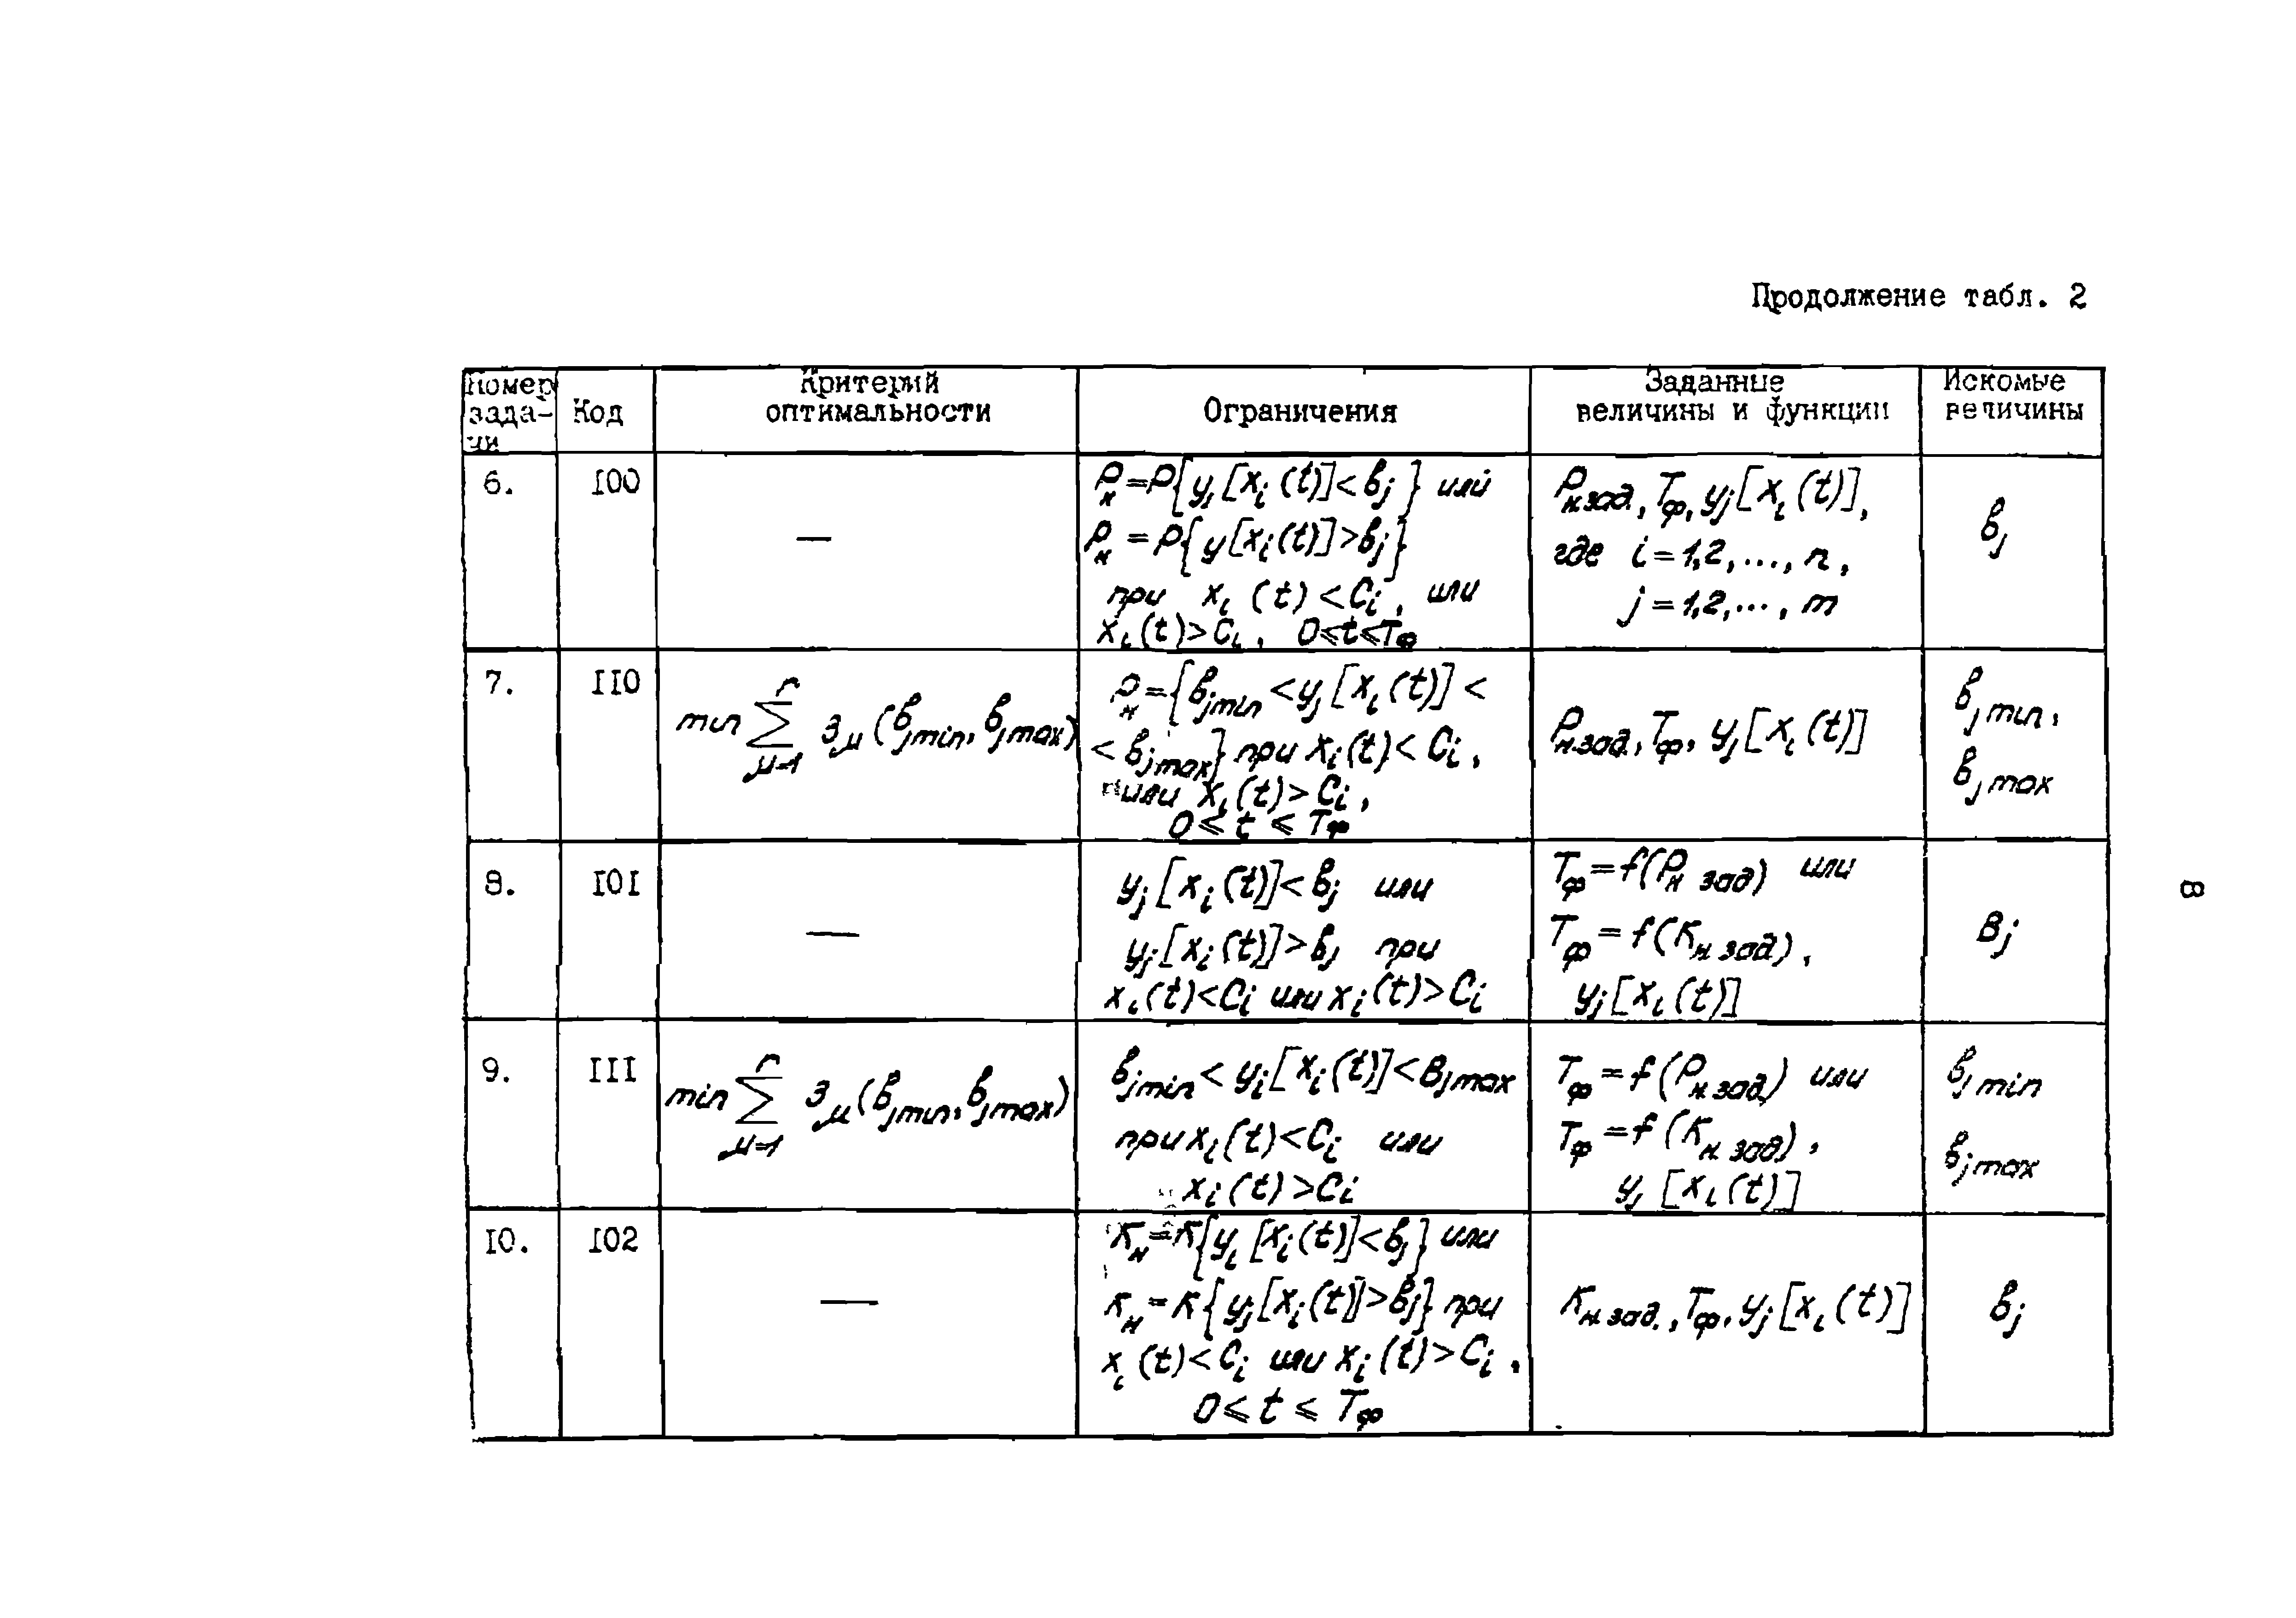 Продолжение табл. 2
Номер задачи
Код
Критерий оптимальности
Ограничения
Заданные величины и функции
Искомые величины
6.
100
—
Pн = P{yj[xi(t)] < bj} или
Pн = P{y[xi(t)] > bj}
при xi(t) < Ci, или
xi(t) > Ci, 0 ⩽ t ⩽ Tф
Pн.зад., Tф, yj[xi(t)],
где i = 1,2,..., n,
j = 1,2,..., m
bj
7.
110
min ∑ μ=1 r Зμ(bjmin, bjmax)
Pн = {bjmin < yj[xi(t)] <
< bjmax} при xi(t) < Ci,
или xi(t) > Ci,
0 ⩽ t ⩽ Tф
Pн.зад., Tф, yj[xi(t)]
bjmin,
bjmax
8.
101
—
yj[xi(t)] < bj или
yj[xi(t)] > bj при
xi(t) < Ci или xi(t) > Ci
Tф = f(Pн зад) или
Tф = f(Kн зад),
yj[xi(t)]
Bj
8
9.
111
min ∑ μ=1 r Зμ(bjmin, bjmax)
bjmin < yi[xi(t)] < Bjmax
при xi(t) < Ci или
xi(t) > Ci
Tф = f(Pн зад) или
Tф = f(Kн зад),
yj[xi(t)]
bjmin
bjmax
10.
102
—
Kн = K{yi[xi(t)] < bj} или
Kн = K{yj[xi(t)] > bj} при
xi(t) < Ci или xi(t) > Ci,
0 ⩽ t ⩽ Tф
Kн зад., Tф, yj[xi(t)]
bj